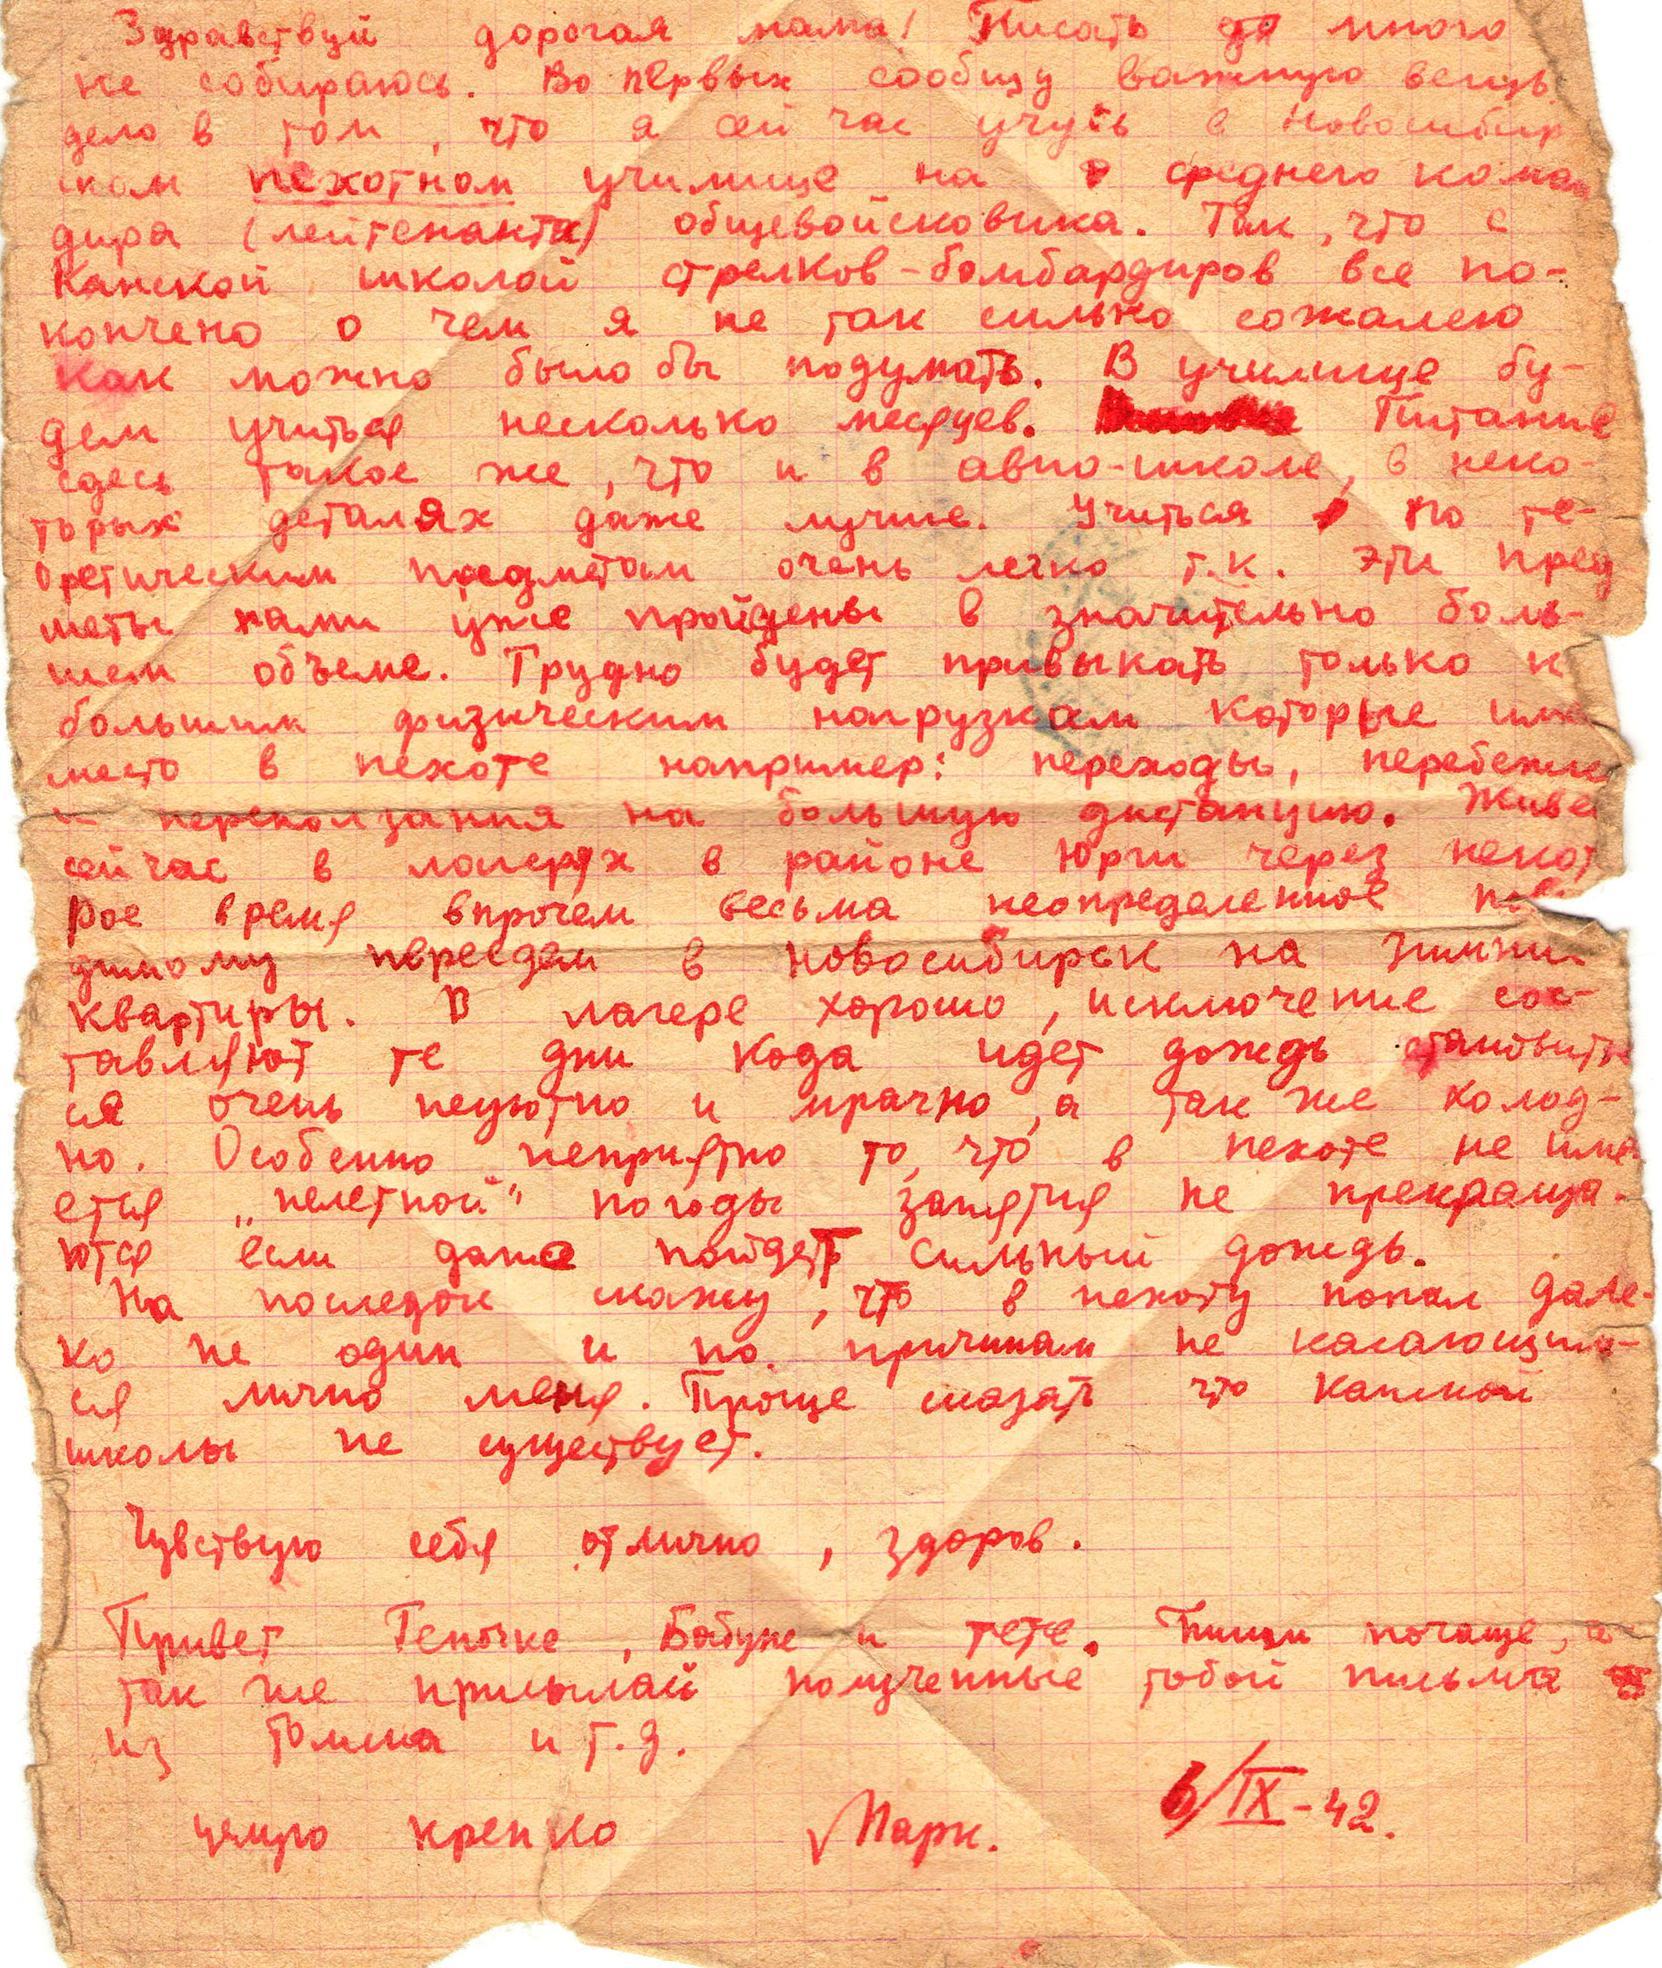 Здравствуй дорогая мама! Писать много
не собираюсь. Во первых сообщу важную вещь.
дело в том, что я сей час учусь в Новосибир
ском пехотном училище на среднего коман
дира (лейтенанта) общевойсковика. Так, что с
Канской школой стрелков-бомбардиров все по-
кончено о чем я не так сильно сожалею
как можно было бы подумать. В училище бу-
дем учиться несколько месяцев. Питание
здесь такое же, что и в авио-школе, в неко-
торых деталях даже лучше. Учиться по те-
оретическим предметам очень легко т.к. эти пред
меты нами уже пройдены в значительно боль-
шем объеме. Трудно будет привыкать только к
большим физическим нагрузкам которые име
место в пехоте например: переходы, перебежки
и переползания на большую дистанцию. Живем
сейчас в лагерях в районе Юрги через некот
рое время впрочем весьма неопределенное пови
димому переедем в Новосибирск на зимние
квартиры. В лагере хорошо, исключение сос-
тавляют те дни кода идет дождь становить
ся очень неуютно и мрачно, а так же холод-
но. Особенно неприятно то, что в пехоте не име
ется „нелетной" погоды занятия не прекраща-
ются если даже пойдет сильный дождь.
На последок скажу, что в пехоту попал дале-
ко не один и по причинам не касающим-
ся лично меня. Проще сказать что канской
школы не существует.
Чувствую себя отлично, здоров.
Привет Геночке, Бабуне и тете. Пиши почаще, а
так же присылай полученные тобой письма
из Томска и т.д.
целую крепко Марк. 6/IX-42.